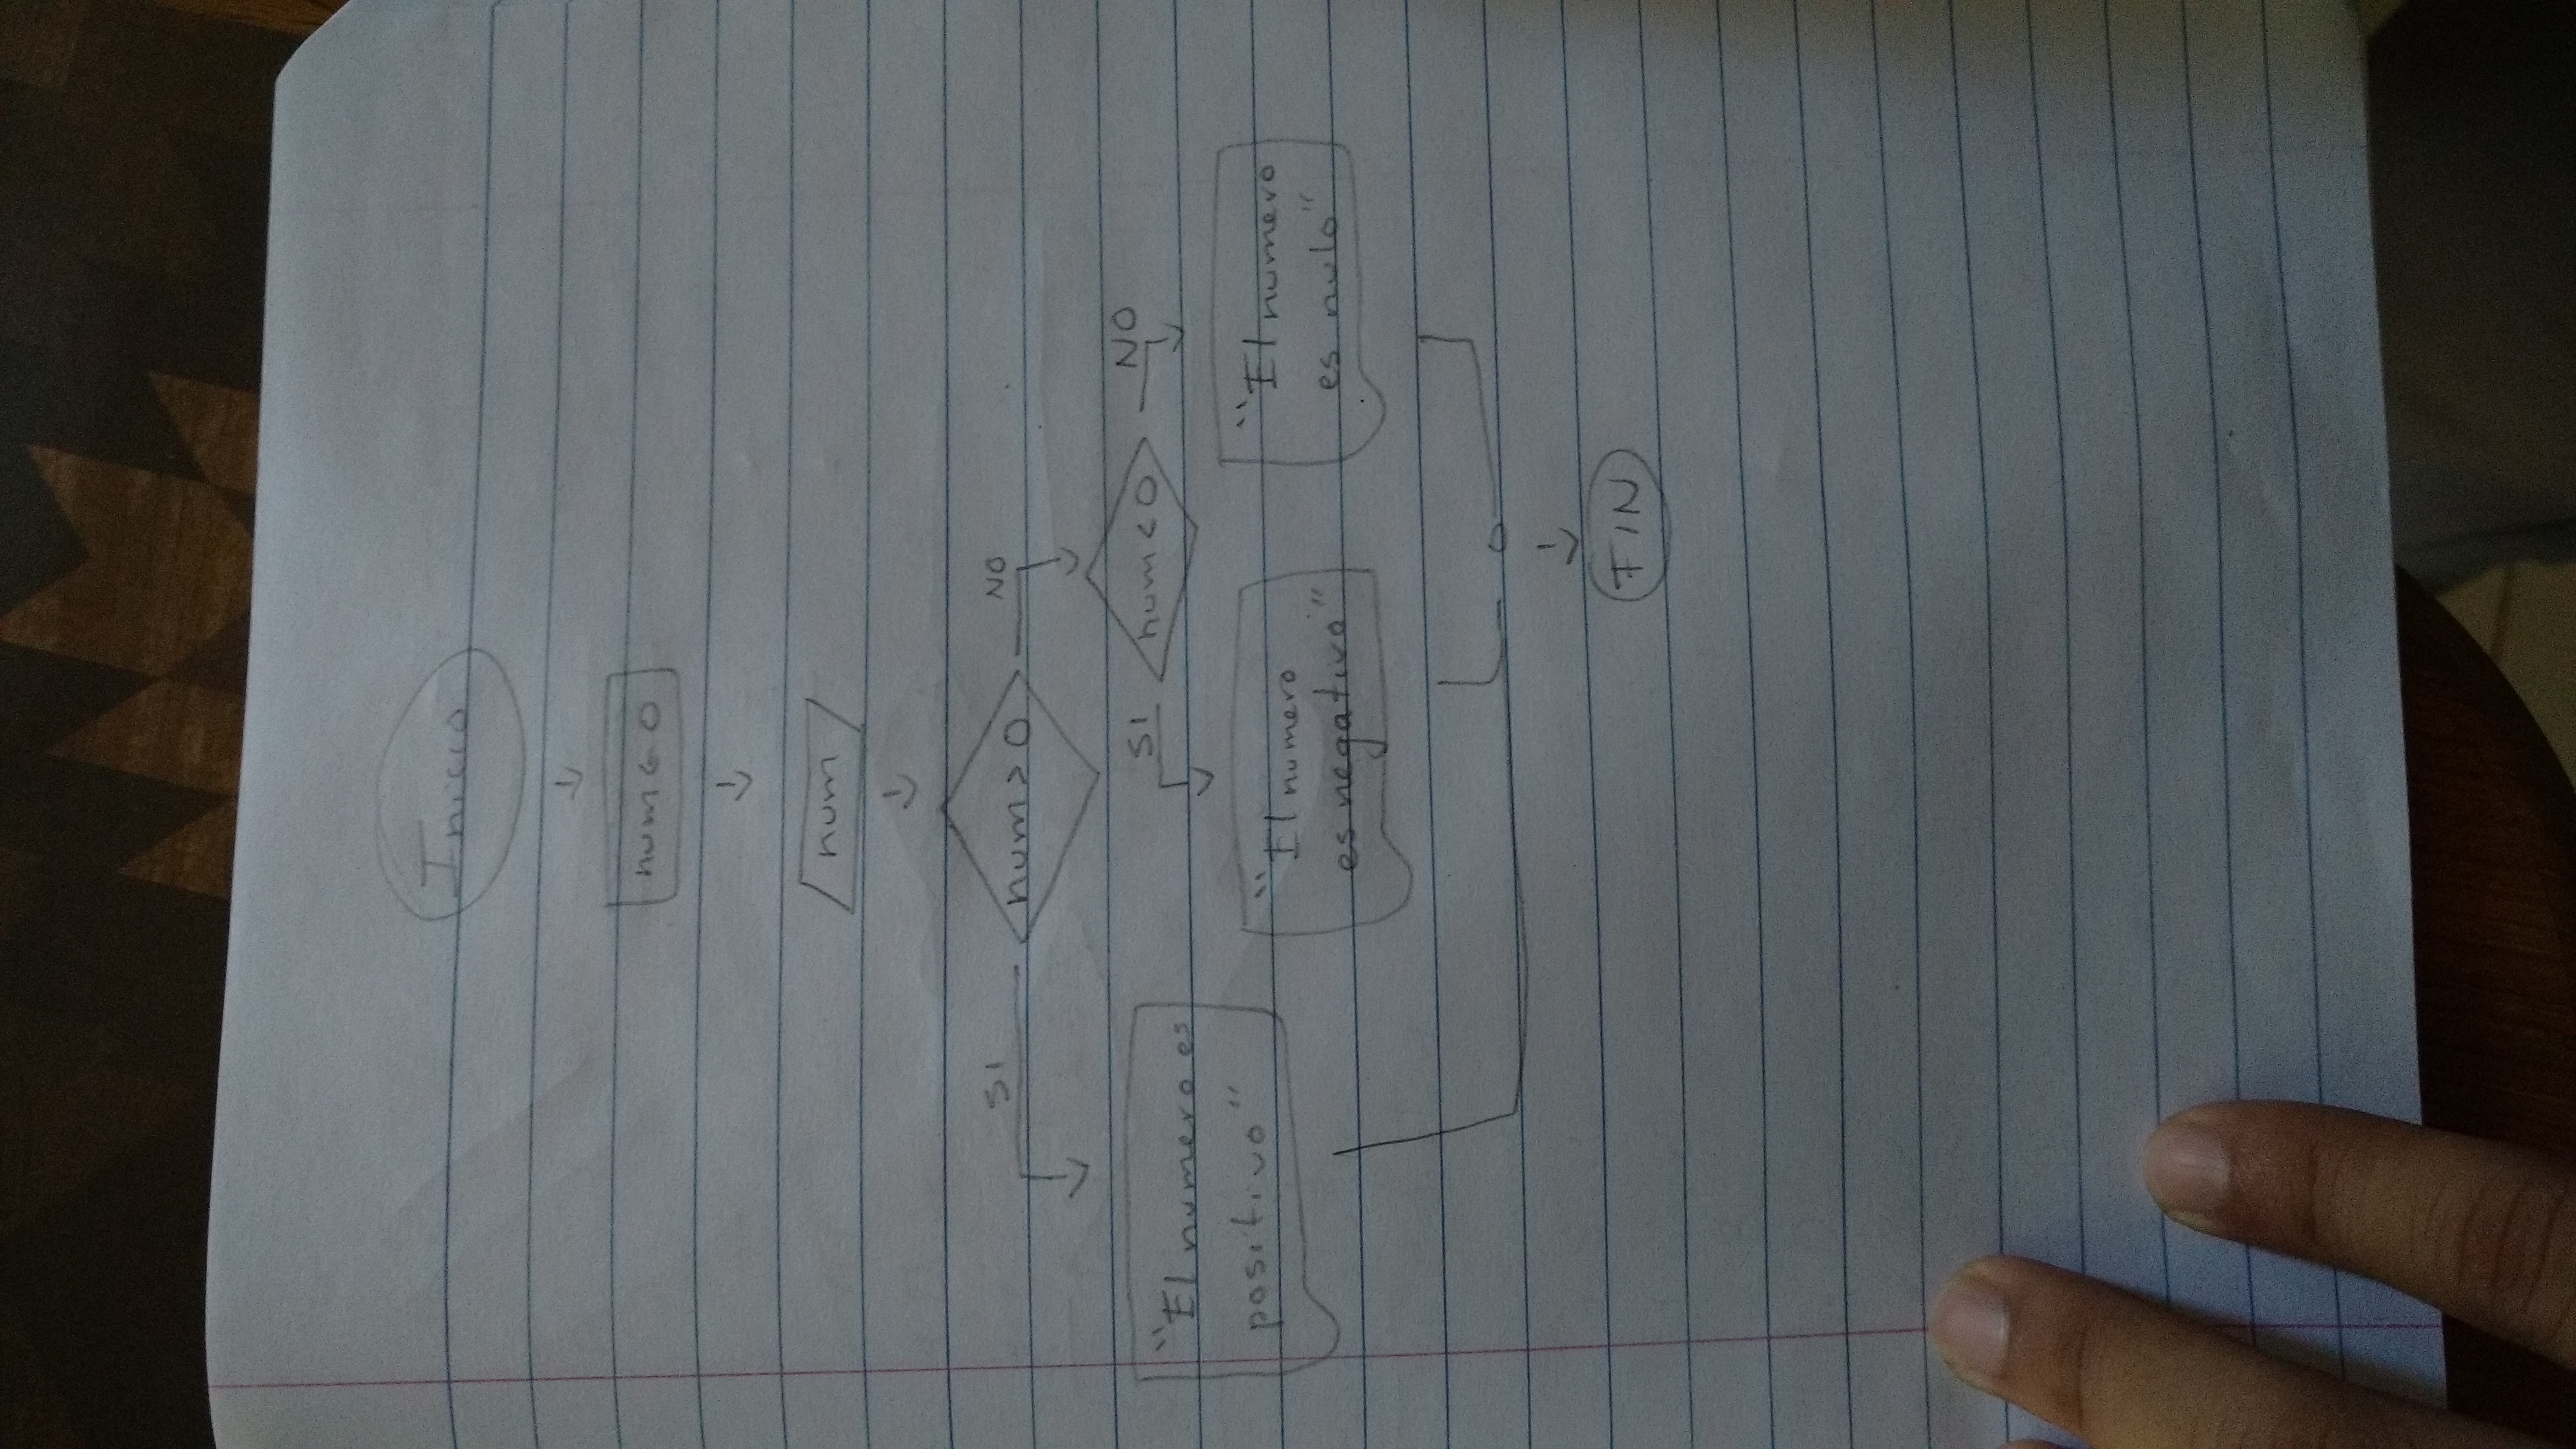 Inicio
num ← 0
num
num > 0
SI
NO
num < 0
SI
NO
"El numero es
positivo"
"El numero
es negativo"
"El numero
es nulo"
FIN